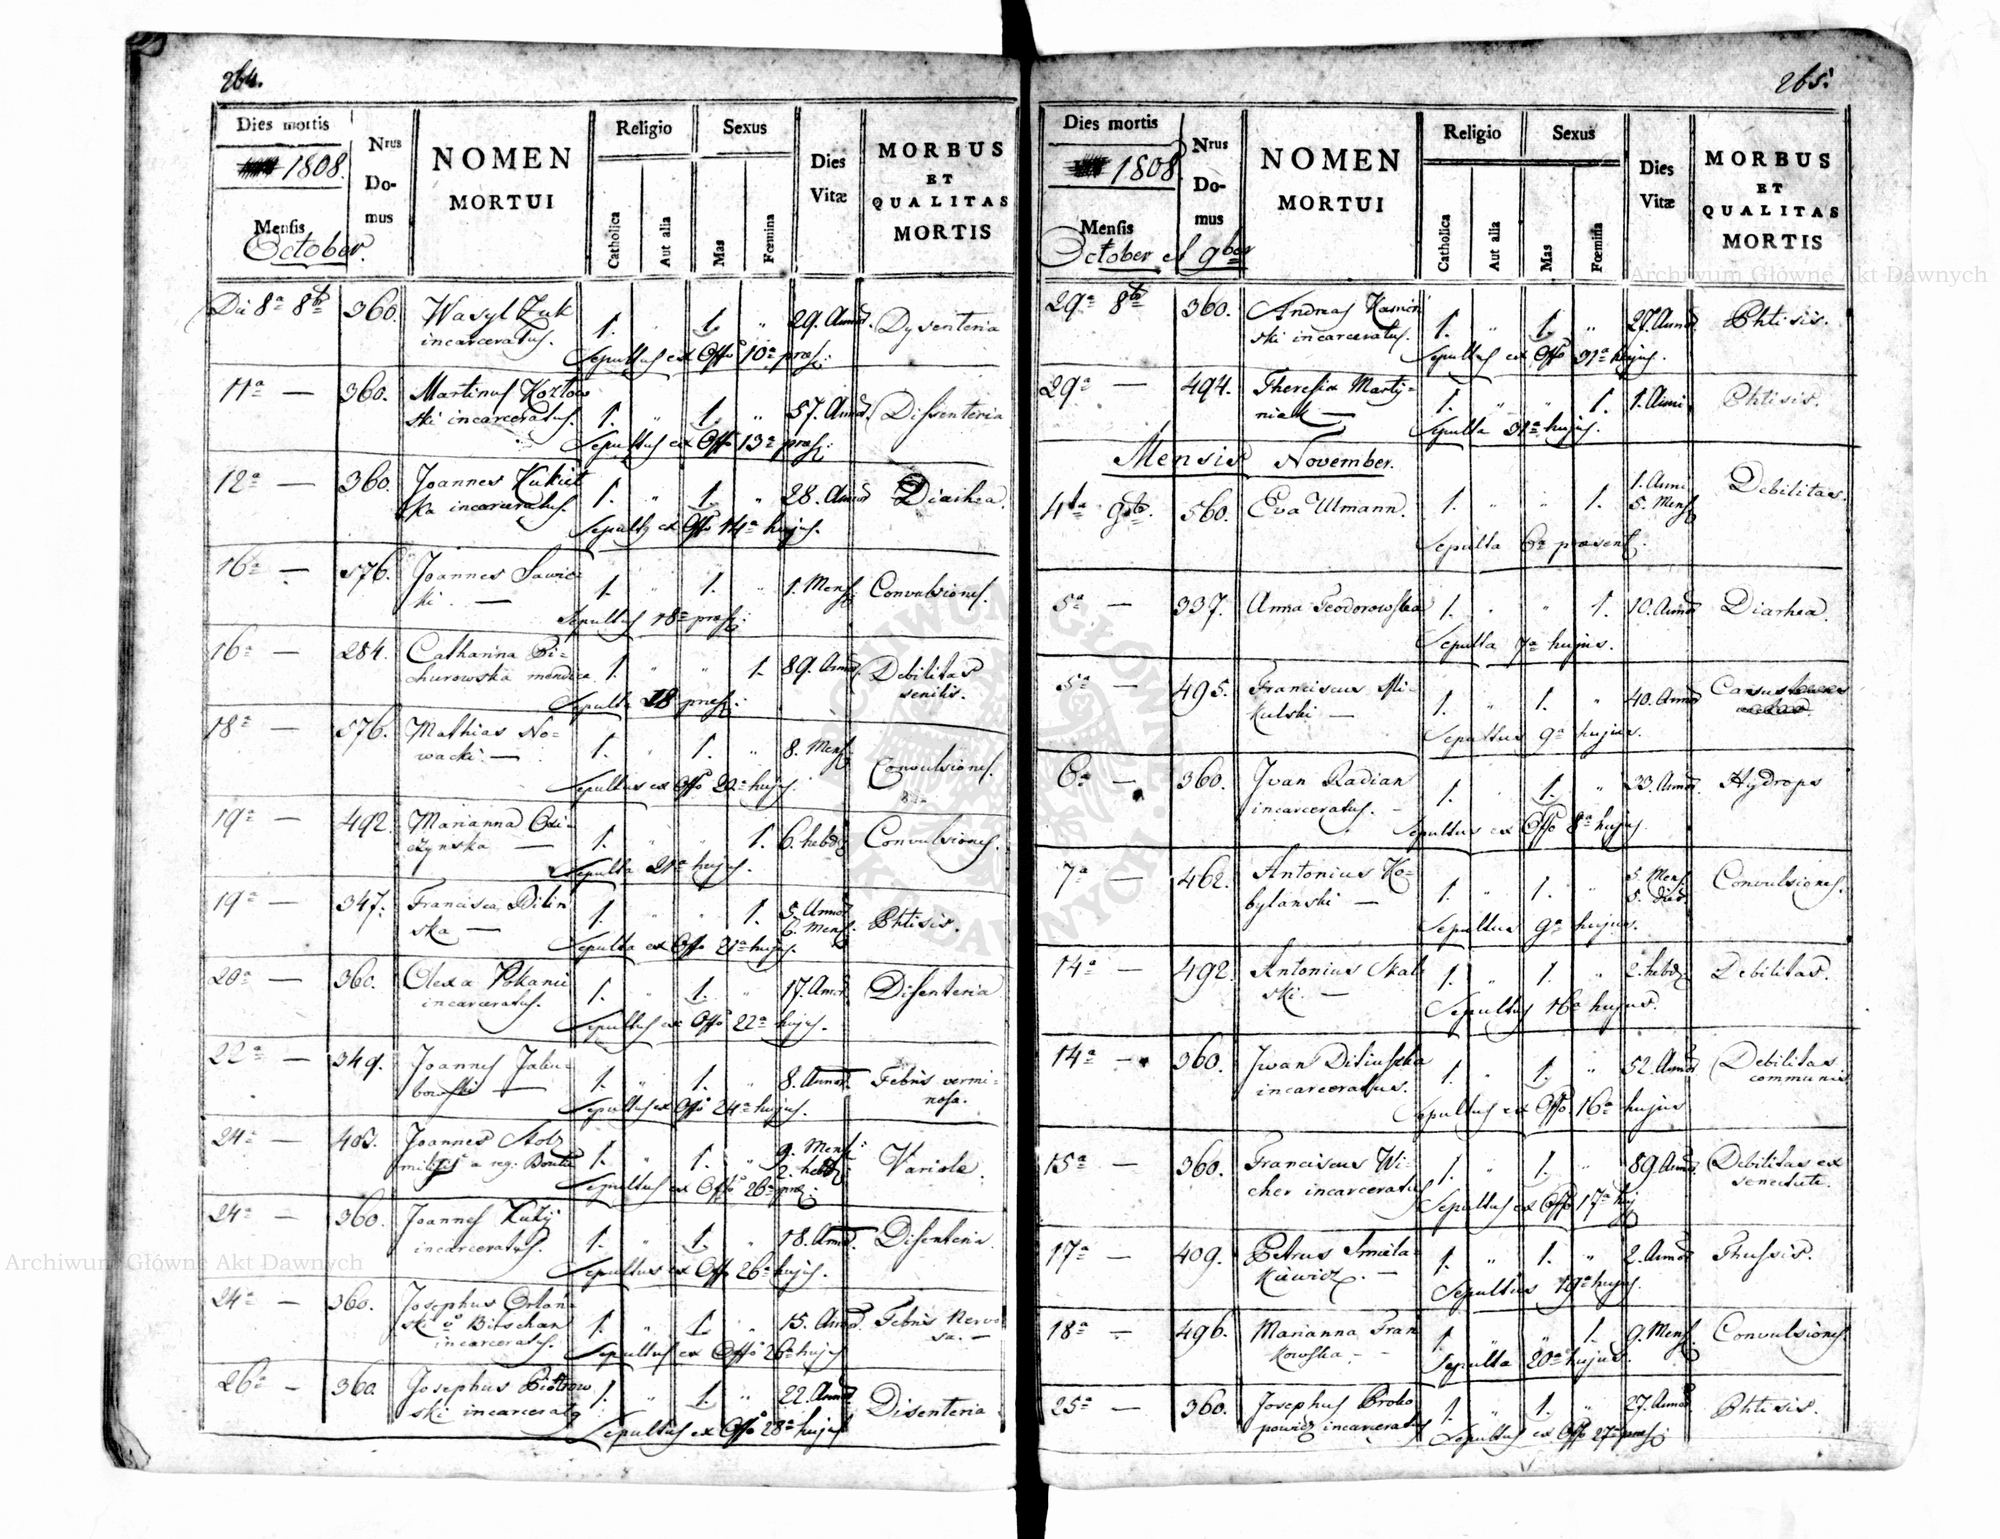 264.
Dies mortis
1808.
Mensis
October.
Nrus Domus
NOMEN
MORTUI
Religio
Catholica
Aut alia
Sexus
Mas
Fœmina
Dies
Vitæ
MORBUS
ET
QUALITAS
MORTIS
Die 8a 8br 360. Wasyl Zuk 1. " 1. " 29. Annor. Dysenteria
incarceratus.
Sepultus ex Offo 10a præs:
11a — 360. Martinus Kozłow
ski incarceratus. 1. " 1. " 57. Annor. Dissenteria
Sepultus ex Offo 13a præs:
12a — 360. Joannes Kukieł
ka incarceratus. 1. " 1. " 28. Annor Diarhea.
Sepult9 ex Offo 14a hujus.
16a — 576. Joannes Sawic
ki. — 1. " 1. " 1. Mens: Convulsiones.
Sepultus 18a præs:
16a — 284. Catharina
mendica 1. " " 1. 89. Annor. Debilitas
senilis.
Sepulta 18 præs:
18a — 576. Mathias No-
wacki. — 1. " 1. " 8. Mens Convulsiones.
Sepultus ex Offo 20a hujus.
19a — 492. Marianna
czynska — 1. " " 1. 6. hebd: Convulsiones.
Sepulta 21a hujus.
19a — 347. Francisca Bilin
ska — 1. " " 1. 5. Annor Phtisis.
6. Mens.
Sepulta ex Offo 21a hujus.
20a — 360. Olexa
incarceratus. 1. " 1. " 17. Annor. Disenteria
Sepultus ex Offo 22a hujus.
22a — 349. Joannes
bowski — 1. " 1. " 8. Annor. Febris vermi-
nosa.
Sepultus ex Offo 24a hujus.
24a — 403. Joannes Stolz
militis a reg: 1. " 1. " 9. Mens: Variola.
2. hebd:
Sepultus ex Offo 26a præ:
24a — 360. Joannes
incarceratus. 1. " 1. " 18. Annor. Disenteria.
Sepultus ex Offo 26a hujus.
24a — 360. Josephus Orłoń
ski v° Bitschan
incarceratus. 1. " 1. " 15. Annor. Febris Nervo
sa. —
Sepultus ex Offo 26a hujus
26a — 360 Josephus Piotrow
ski incarcerat9 1. " 1. " 22. Annor Disenteria.
Sepultus ex Offo 28a hujus
265.
Dies mortis
1808.
Mensis
October et 9ber
Nrus Domus
NOMEN
MORTUI
Religio
Catholica
Aut alia
Sexus
Mas
Fœmina
Dies
Vitæ
MORBUS
ET
QUALITAS
MORTIS
29a 8br 360. Andreas Kamiń
ski incarceratus. 1. " 1. " 27. Annor. Phtisis.
Sepultus ex Offo 31a hujus.
29a — 494. Theresia Marti-
niak — 1. " " 1. 1. Anni Phtisis.
Sepulta 31a hujus.
Mensis November.
4ta 9br. 560. Eva Ulmann. 1. " " 1. 1. Anni Debilitas.
5. Mens
Sepulta 6a præsent:
5a — 337. Anna Teodorowska 1. " " 1. 10. Annor Diarhea.
Sepulta 7a hujus.
5a — 495. Franciscus Mi-
kulski — 1. " 1. " 40. Annor Casus
Sepultus 9a hujus.
6a — 360. Ivan Radian
incarceratus. — 1. " 1. " 33. Annor. Hydrops
Sepultus ex Offo 8a hujus
7a — 462. Antonius Ko-
bylanski — 1. " 1. " 5. Mens Convulsiones.
5. dies
Sepultus 9a hujus.
14a — 492. Antonius Skal
ski. — 1. " 1. " 2. hebd: Debilitas.
Sepultus 16a hujus.
14a — 360. Iwan
incarceratus. 1. " 1. " 52. Annor Debilitas
communis
Sepultus ex Offo 16a hujus
15a — 360. Franciscus Wi-
cher incarceratus 1. " 1. " 89. Annor Debilitas ex
senectute.
Sepultus ex Offo 17a huj
17a — 409. Petrus Smieta-
kiewicz. — 1. " 1. " 2. Annor Thussis.
Sepultus 19a hujus
18a — 496. Marianna Fran
kowska — 1. " " 1. 9. Mens. Convulsiones.
Sepulta 20a hujus.
25a — 360. Josephus Proko
powicz incarceratus 1. " 1. " 27. Annor. Phtisis.
Sepultus ex Offo 27a præs:
Archiwum Główne Akt Dawnych
Archiwum Główne Akt Dawnych
ARCHIWUM GŁÓWNE AKT DAWNYCH